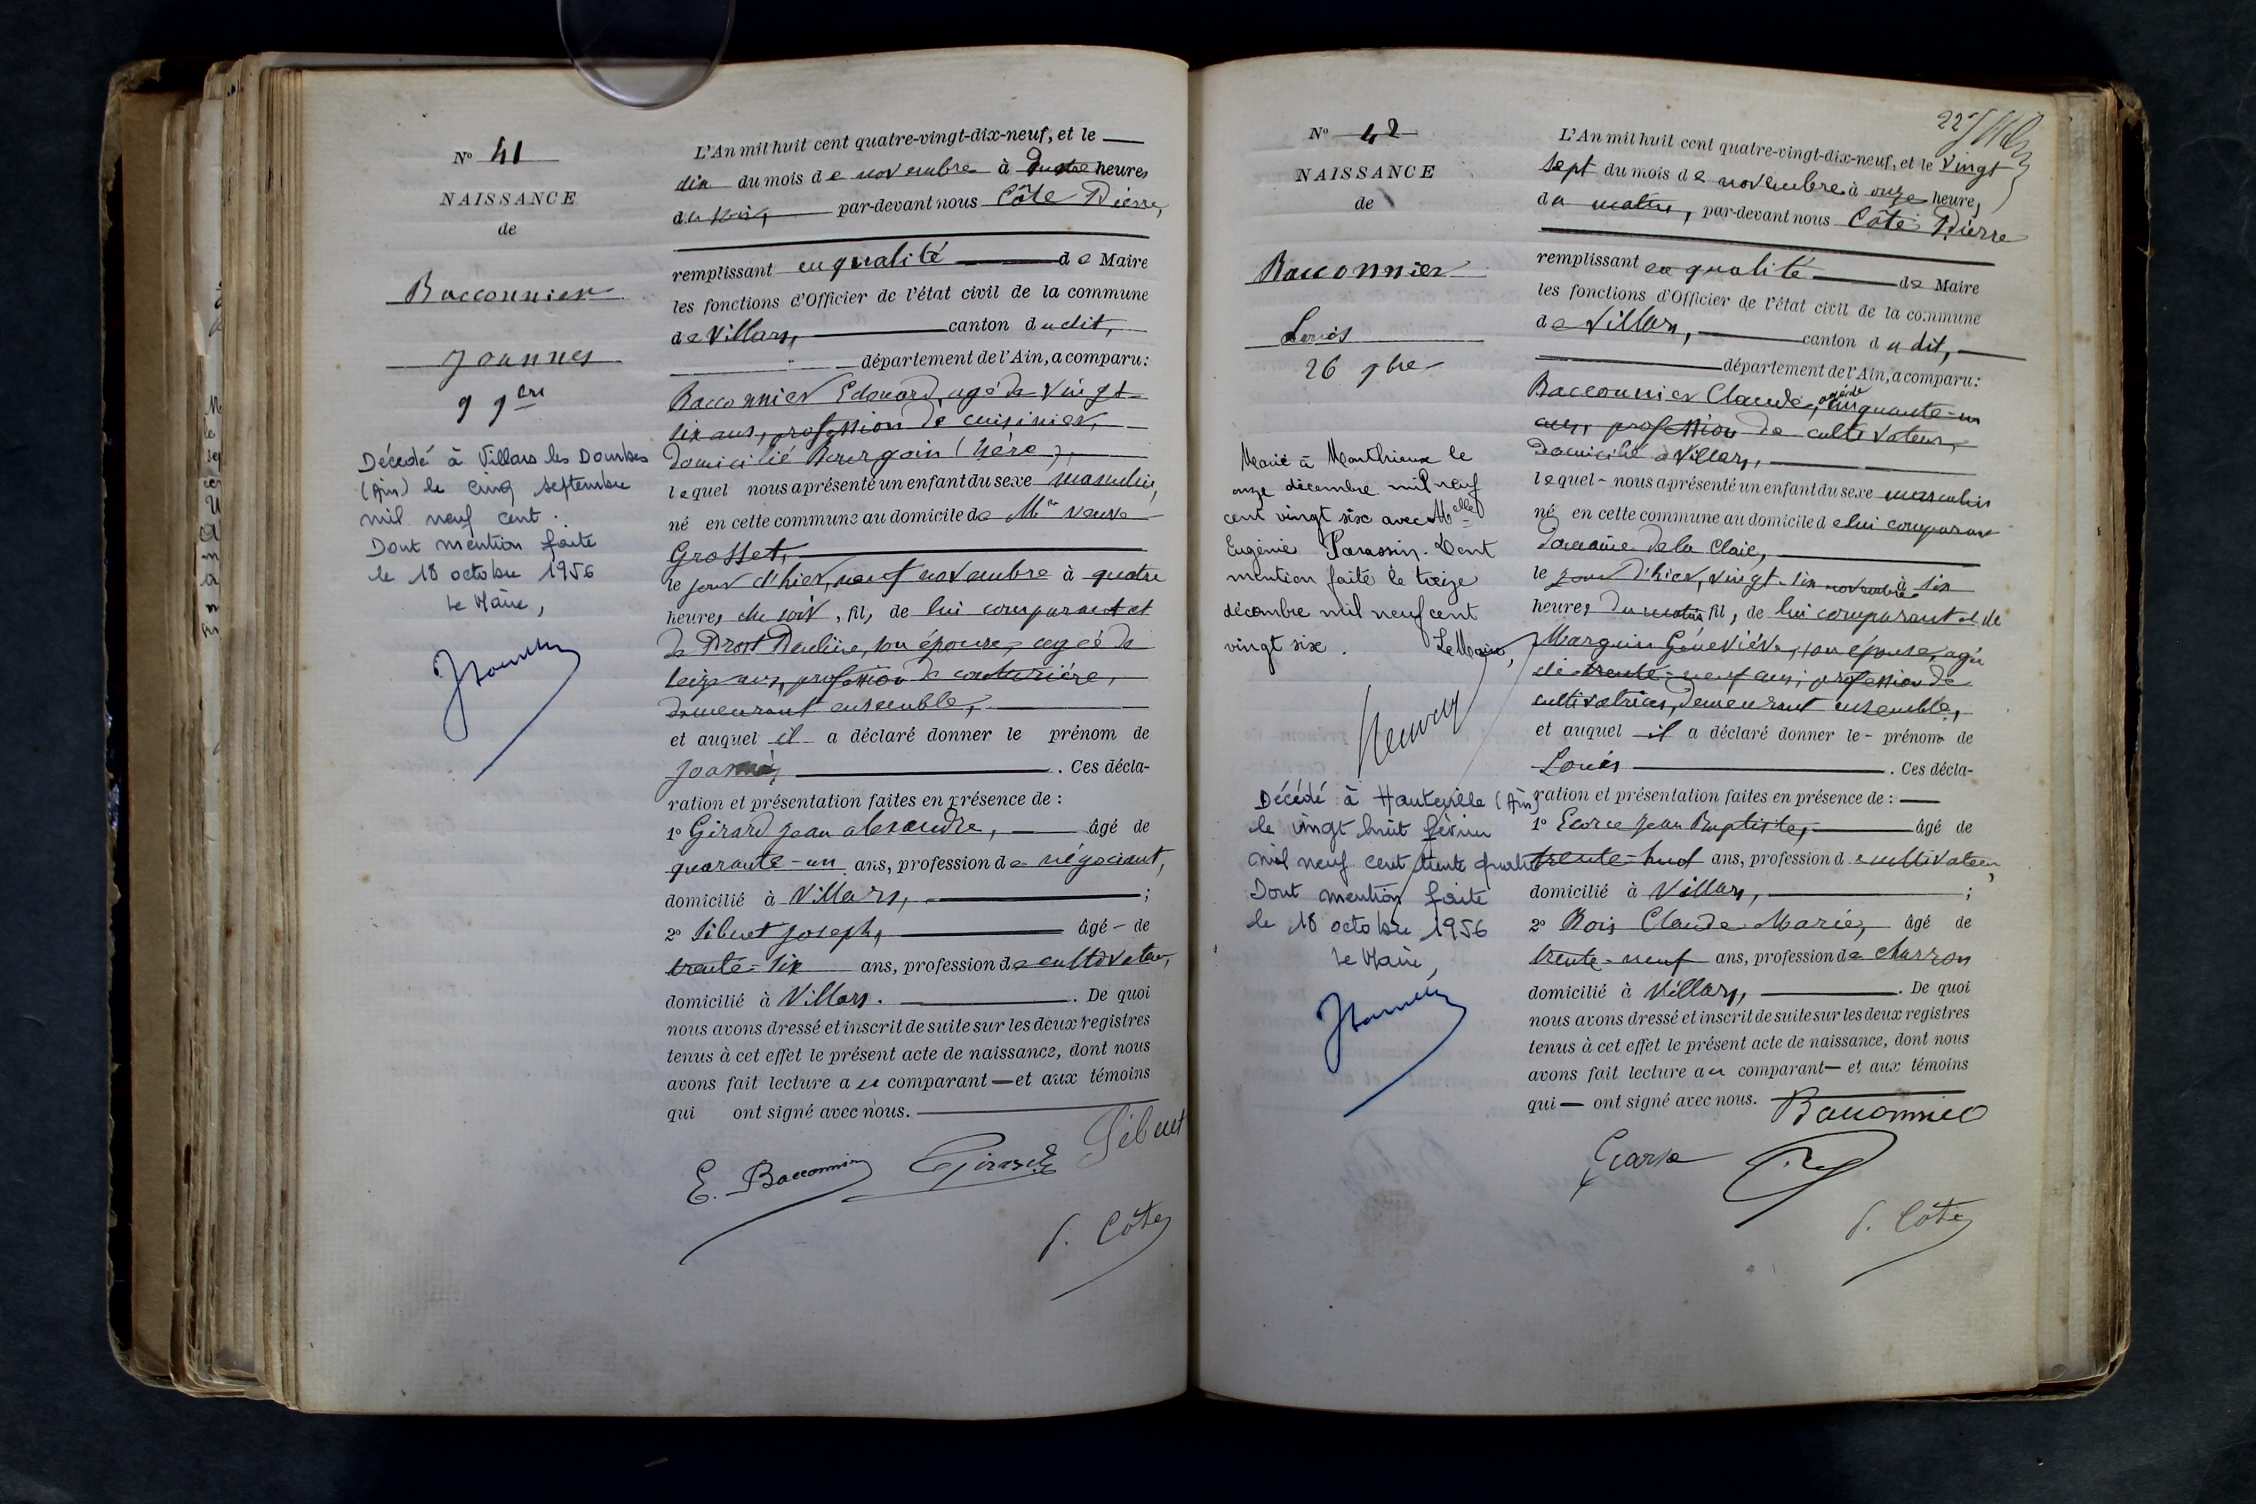 N° 41
NAISSANCE
de
Bacconnier
Joannes
9 9bre
Décédé à Villars les Dombes
(Ain) le cinq septembre
mil neuf cent.
Dont mention faite
le 18 octobre 1956
Le Maire,
L'An mil huit cent quatre-vingt-dix-neuf, et le
dix du mois de novembre à quatre heures
du soir, par-devant nous Côte Pierre,
remplissant en qualité de Maire
les fonctions d'Officier de l'état civil de la commune
de Villars, canton dudit,
département de l'Ain, a comparu:
Bacconnier Edouard, agé de vingt
six ans, profession de cuisinier,
domicilié Bourgoin (Isère),
lequel nous a présenté un enfant du sexe masculin,
né en cette commune au domicile de Mme veuve
Grosset,
le jour d'hier, neuf novembre à quatre
heures du soir, fils de lui comparant et
de Prost Pauline, son épouse, agée de
seize ans, profession de couturière,
demeurant ensemble,
et auquel il a déclaré donner le prénom de
Joannès . Ces décla-
ration et présentation faites en présence de :
1° Girard Jean alexandre, âgé de
quarante-un ans, profession de négociant,
domicilié à Villars, ;
2° Sibuet Joseph, âgé de
trente-six ans, profession de cultivateur,
domicilié à Villars. . De quoi
nous avons dressé et inscrit de suite sur les deux registres
tenus à cet effet le présent acte de naissance, dont nous
avons fait lecture au comparant et aux témoins
qui ont signé avec nous.
Sibuet
E. Bacconnier Girard
P. Côte
22
N° 42
NAISSANCE
de
Bacconnier
Louis
26 9bre
Marié à Monthieux le
onze décembre mil neuf
cent vingt six avec Melle
Eugénie Parassin. Dont
mention faite le treize
décembre mil neuf cent
vingt six. Le Maire,
Décédé à Hauteville (Ain)
le vingt huit février
mil neuf cent trente quatre
Dont mention faite
le 18 octobre 1956
Le Maire,
L'An mil huit cent quatre-vingt-dix-neuf, et le vingt
sept du mois de novembre à onze heures
du matin, par-devant nous Côte Pierre
remplissant en qualité de Maire
les fonctions d'Officier de l'état civil de la commune
de Villars, canton dudit,
département de l'Ain, a comparu:
Bacconnier Claude, agé de cinquante-un
ans, profession de cultivateur,
domicilié à Villars,
lequel nous a présenté un enfant du sexe masculin
né en cette commune au domicile de lui comparant
domaine de la Claie,
le jour d'hier, vingt-six novembre à six
heures du matin fils de lui comparant et de
Marguin Géneviève, son épouse, agée
de trente-neuf ans, profession de
cultivatrice, demeurant ensemble,
et auquel il a déclaré donner le prénom de
Louis . Ces décla-
ration et présentation faites en présence de :
1° Ecorce Jean Baptiste, âgé de
trente-huit ans, profession de cultivateur,
domicilié à Villars, ;
2° Bois Claude Marie, âgé de
trente-neuf ans, profession de charron
domicilié à Villars, . De quoi
nous avons dressé et inscrit de suite sur les deux registres
tenus à cet effet le présent acte de naissance, dont nous
avons fait lecture au comparant et aux témoins
qui ont signé avec nous.
Bacconnier
P. Côte